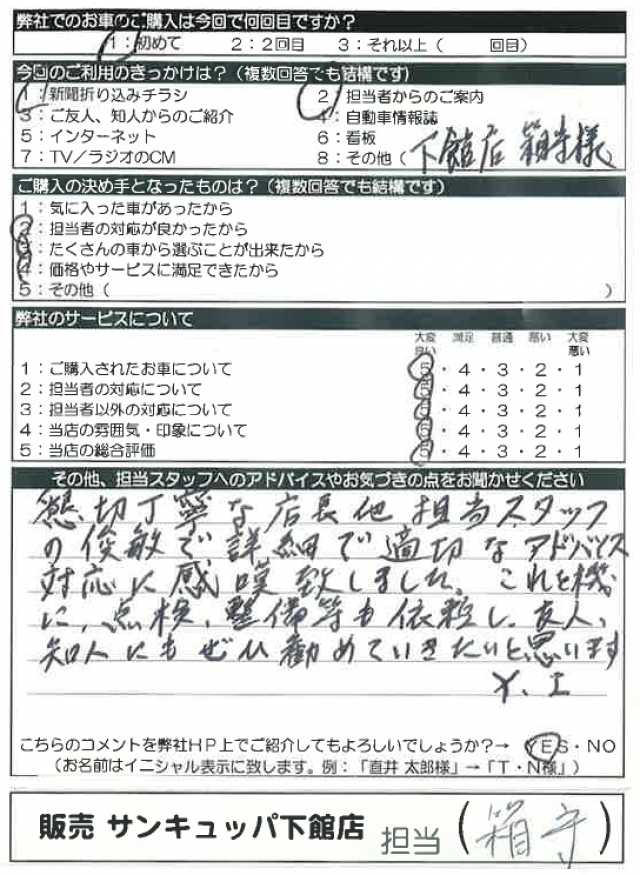 弊社でのお車のご購入は今回で何回目ですか？
1：初めて　2：2回目　3：それ以上（　回目）
今回のご利用のきっかけは？（複数回答でも結構です）
1：新聞折り込みチラシ　2：担当者からのご案内
3：ご友人、知人からのご紹介　4：自動車情報誌
5：インターネット　6：看板
7：TV／ラジオのCM　8：その他（下館店 箱守様
ご購入の決め手となったものは？（複数回答でも結構です）
1：気に入った車があったから
2：担当者の対応が良かったから
3：たくさんの車から選ぶことが出来たから
4：価格やサービスに満足できたから
5：その他（　）
弊社のサービスについて
大変良い　満足　普通　悪い　大変悪い
1：ご購入されたお車について　5・4・3・2・1
2：担当者の対応について　5・4・3・2・1
3：担当者以外の対応について　5・4・3・2・1
4：当店の雰囲気・印象について　5・4・3・2・1
5：当店の総合評価　5・4・3・2・1
その他、担当スタッフへのアドバイスやお気づきの点をお聞かせください
懇切丁寧な店長他担当スタッフ
の俊敏で詳細で適切なアドバイス
対応に感嘆致しました。これを機
に、点検、整備等も依頼し、友人、
知人にもぜひ勧めていきたいと思います
Y. I
こちらのコメントを弊社HP上でご紹介してもよろしいでしょうか？→ YES・NO
（お名前はイニシャル表示に致します。例：「直井 太郎様」→「T・N様」）
販売 サンキュッパ下館店 担当（箱守）